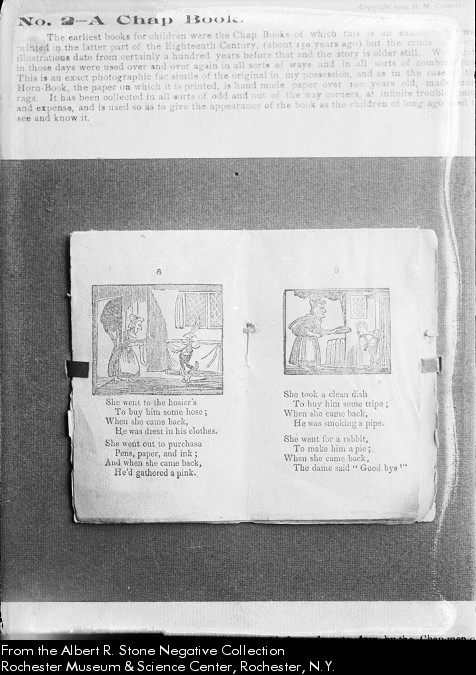 Copyright 1905, H. W.
No. 2—A Chap Book.
The earliest books for children were the Chap Books of which this is an
printed in the latter part of the Eighteenth Century, (about 150 years ago) but the crude
illustrations date from certainly a hundred years before that and the story is older still.
in those days were used over and over again in all sorts of ways and in all sorts of
This is an exact photographic fac simile of the original in my possession, and as in the case
Horn-Book, the paper on which it is printed, is hand made paper over 100 years old, made
rags. It has been collected in all sorts of odd and out of the way corners, at infinite trouble
and expense, and is used so as to give the appearance of the book as the children of long ago
see and know it.
8
She went to the hosier's
To buy him some hose;
When she came back,
He was drest in his clothes.
She went out to purchase
Pens, paper, and ink;
And when she came back,
He'd gathered a pink.
9
She took a clean dish
To buy him some tripe;
When she came back,
He was smoking a pipe.
She went for a rabbit,
To make him a pie;
When she came back,
The dame said "Good bye!"
by the Chap-men
From the Albert R. Stone Negative Collection
Rochester Museum & Science Center, Rochester, N.Y.